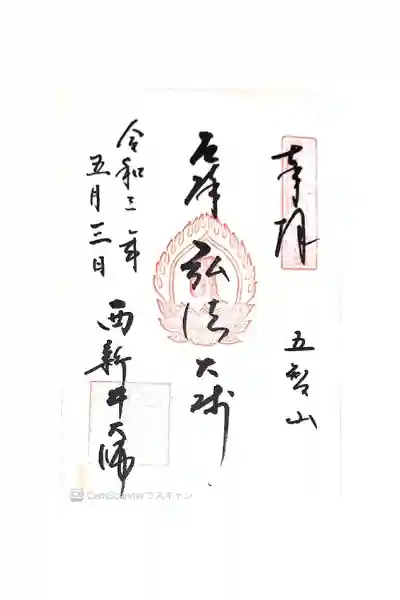 奉拝
五智山
厄除
弘法大師
西新井大師
令和三年
五月三日
CamScannerでスキャン